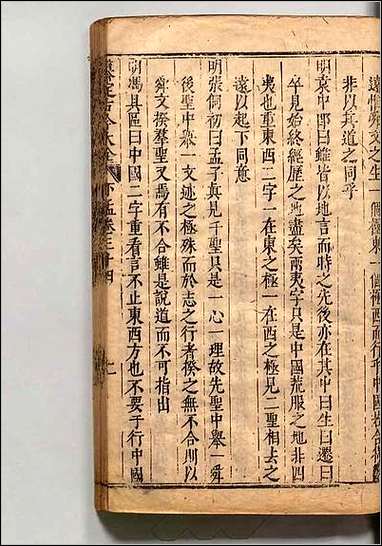 非以其道之同乎
明袁中郎曰雖皆以地言而時之先後亦在其中曰生曰遷曰
卒見始終經歷之地盡矣兩夷字只是中國荒服之地非四
夷也重東西二字一在東之極一在西之極見二聖相去之
遠以起下同意
明張侗初曰孟子真見千聖只是一心一理故先聖中舉一舜
後聖中舉一文迹之極殊而於志之行者揆之無不合則以
舜文揆羣聖又焉有不合雖是說道而不可指出
明馮具區曰中國二字重看言不止東西方也不要于行中國
下孟卷三十四